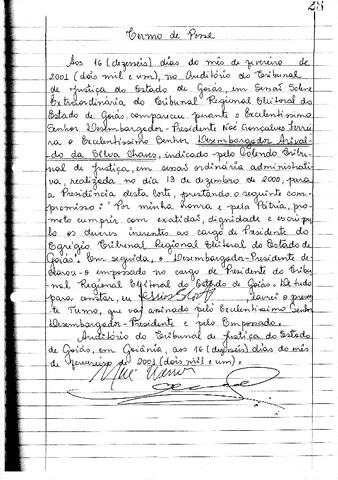 28
Termo de Posse
Aos 16 (dezesseis) dias do mês de fevereiro de
2001 (dois mil e um), no Auditório do Tribunal
de Justiça do Estado de Goiás, em Sessão
Extraordinária do Tribunal Regional Eleitoral do
Estado de Goiás, compareceu perante o Excelentíssimo
Senhor Desembargador-Presidente Noé Gonçalves Ferrei
ra o Excelentíssimo Senhor Desembargador Arival
do da Silva Chaves, indicado pelo Colendo Tribu-
nal de Justiça, em sessão ordinária administrati
va, realizada no dia 13 de dezembro de 2000, para
a Presidência desta Corte, prestando o seguinte com-
promisso: "Por minha honra e pela Pátria, pro-
meto cumprir com exatidão, dignidade e escrúpu
lo os deveres inerentes ao cargo de Presidente do
Egrégio Tribunal Regional Eleitoral do Estado de
Goiás". Em seguida, o Desembargador-Presidente de-
clarou o empossado no cargo de Presidente do Tribu
nal Regional Eleitoral do Estado de Goiás. De tudo
para constar, eu lavrei o presen
te Termo, que vai assinado pelo Excelentíssimo Senhor
Desembargador-Presidente e pelo Empossado.
Auditório do Tribunal de Justiça do Estado
de Goiás, em Goiânia, aos 16 (dezesseis) dias do mês
de fevereiro de 2001 (dois mil e um).